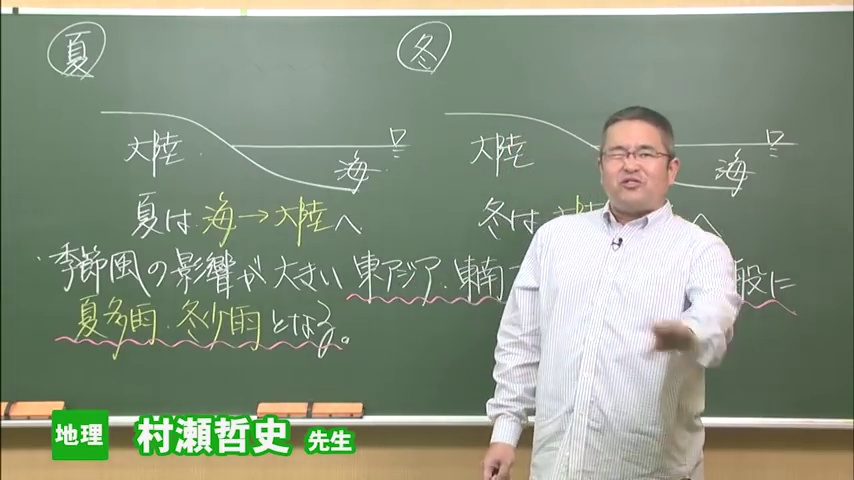 夏
冬
大陸
海
大陸
海
夏は海→大陸へ
冬は大陸 へ
季節風の影響が大きい東アジア・東南 般に
夏多雨・冬少雨となる。
地理 村瀬哲史 先生